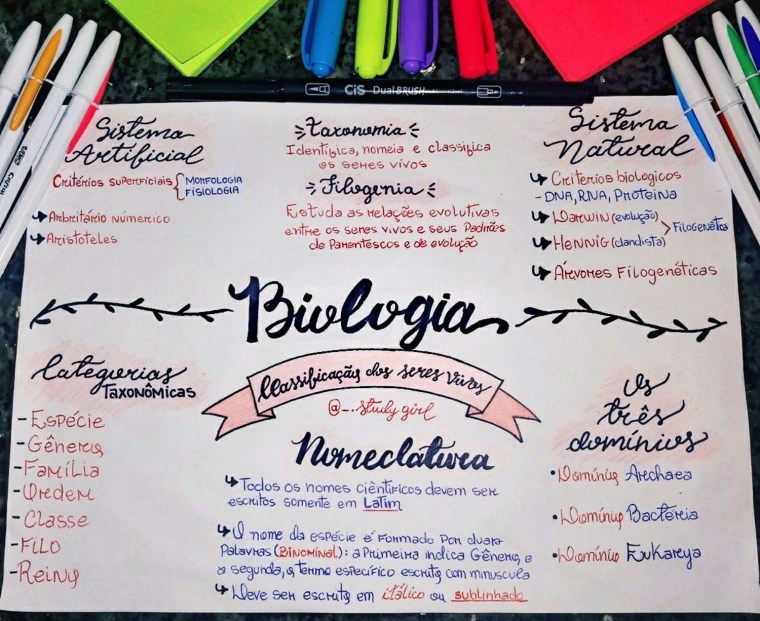 CiS Dual BRUSH
Sistema
Artificial
Critérios superficiais { MORFOLOGIA
FISIOLOGIA
↳ Arbritário númerico
↳ Aristoteles
Taxonomia
Identifica, nomeia e classifica
os seres vivos
Filogenia
Estuda as relações evolutivas
entre os seres vivos e seus Padrões
de Parentescos e de evolução
Sistema
Natural
↳ Criterios biologicos
- DNA, RNA, Proteína
↳ Darwin (evolução)
↳ Hennig (cladista) > Filogenética
↳ Árvores Filogenéticas
Biologia
Classificação dos seres vivos
@_..study girl
Categorias
TAXONÔMICAS
- Espécie
- Gênero
- Família
- Ordem
- Classe
- Filo
- Reino
Nomeclatura
↳ Todos os nomes científicos devem ser
escritos somente em Latim
↳ O nome da espécie é formado por duas
Palavras (BINOMINAL): a Primeira indica Gênero, e
a segunda, o termo específico escrito com minuscula
↳ Deve ser escrito em itálico ou sublinhado
Os
três
domínios
• Domínio Archaea
• Domínio Bactéria
• Domínio Eukarya